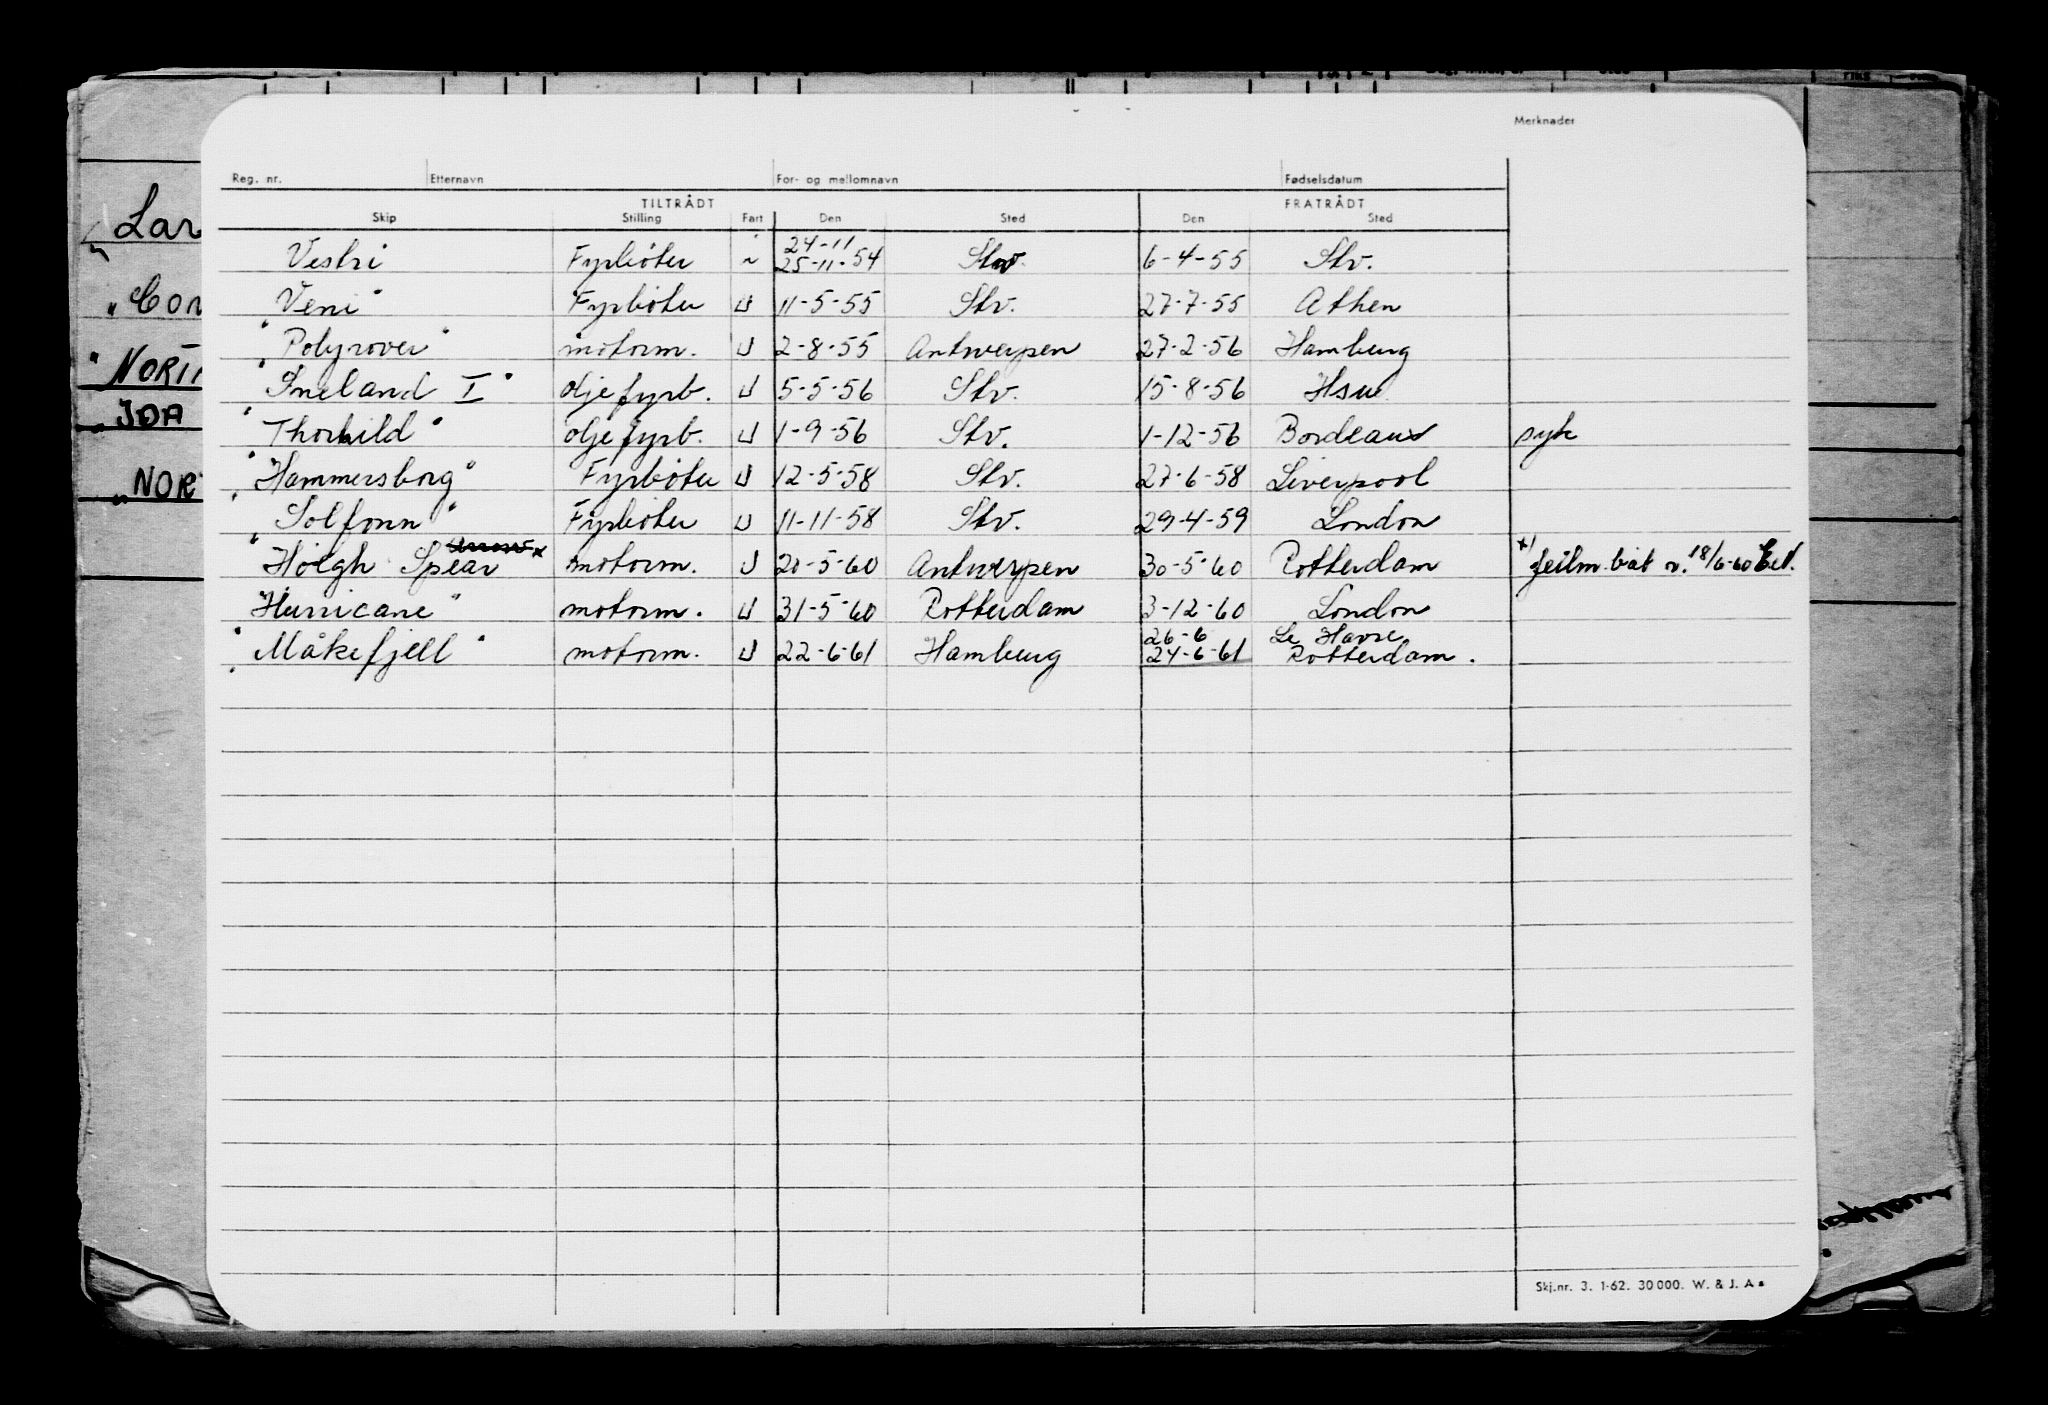 Merknader
Reg. nr. Etternavn For- og mellomnavn Fødselsdatum
TILTRÅDT FRATRÅDT
Skip Stilling Fart Den Sted Den Sted
24-11
Vestri Fyrbøter 25-11-54 Stv. 6-4-55 Stv.
Veni" Fyrbøter U 11-5-55 Stv. 27-7-55 Athen
"Polyrover" motorm. U 2-8-55 Antwerpen 27-2-56 Hamburg
"Ineland I" oljefyrb. U 5-5-56 Stv. 15-8-56
"Thorhild" oljefyrb. U 1-9-56 Stv. 1-12-56 Bordeaux syk
"Hammersborg" Fyrbøter U 12-5-58 Stv. 27-6-58 Liverpool
"Solfonn" Fyrbøter U 11-11-58 Stv. 29-4-59 London
"Høegh Spear x motorm. U 20-5-60 Antwerpen 30-5-60 Rotterdam x) feilm. båt 18/6-60
Hurricane" motorm. U 31-5-60 Rotterdam 3-12-60 London
26-6 Le Havre
"Måkefjell" motorm. U 22-6-61 Hamburg 24-6-61 Rotterdam.
Skj.nr. 3. 1-62. 30000. W. & J. A
Lar
"Cor
"NORT
JOA
"NOR